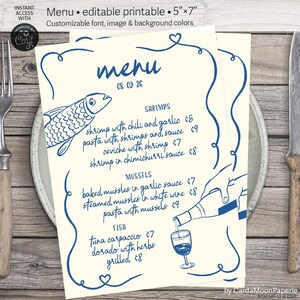 INSTANT
ACCESS
WITH
Menu • editable printable • 5"×7"
Customizable font, image & background colors
menu
08 03 26
SHRIMPS
shrimp with chili and garlic €5
pasta with shrimps and sauce €9
ceviche with shrimp €7
shrimp in chimichurri sauce €8
MUSSELS
baked mussles in garlic sauce €7
steamed mussles in white wine €8
pasta with mussels €9
FISH
tuna carpaccio €7
dorado with herbs
grilled €8
by CardaMoonPaperie